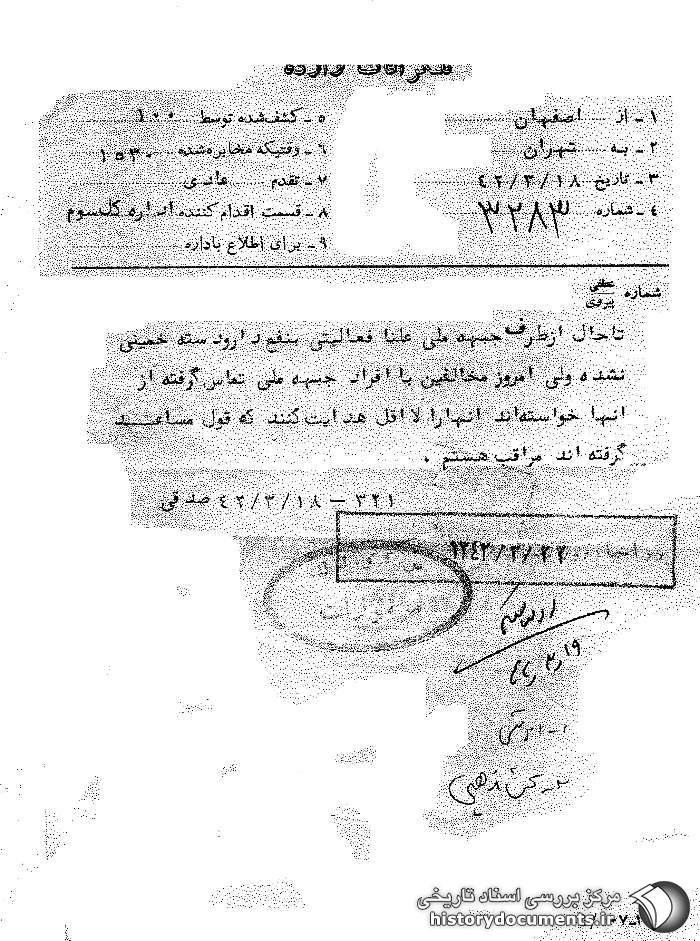 تلگرافات وارده
۱ ـ از اصفهان
۲ ـ به تهران
۳ ـ تاریخ ۴۲/۳/۱۸
۴ ـ شماره ۳۲۸۳
۵ ـ کشف شده توسط ۱۰۰
۶ ـ وقتیکه مخابره شده ۱۵۳۰
۷ ـ تقدم عادی
۸ ـ قسمت اقدام کننده اداره کل سوم
۹ ـ برای اطلاع باداره
شماره عطفی پیروی
تاحال ازطرف جبهه ملی علنا فعالیتی بنفع دارودسته خمینی
نشده ولی امروز مخالفین با افراد جبهه ملی تماس گرفته از
انها خواسته‌اند انهارا لااقل هدایت کنند که قول مساعد
گرفته اند مراقب هستم .
۳۲۱ – ۴۲/۳/۱۸ صدقی
۱۳۴۲/۳/۲۲
مرکز بررسی اسناد تاریخی
historydocuments.ir